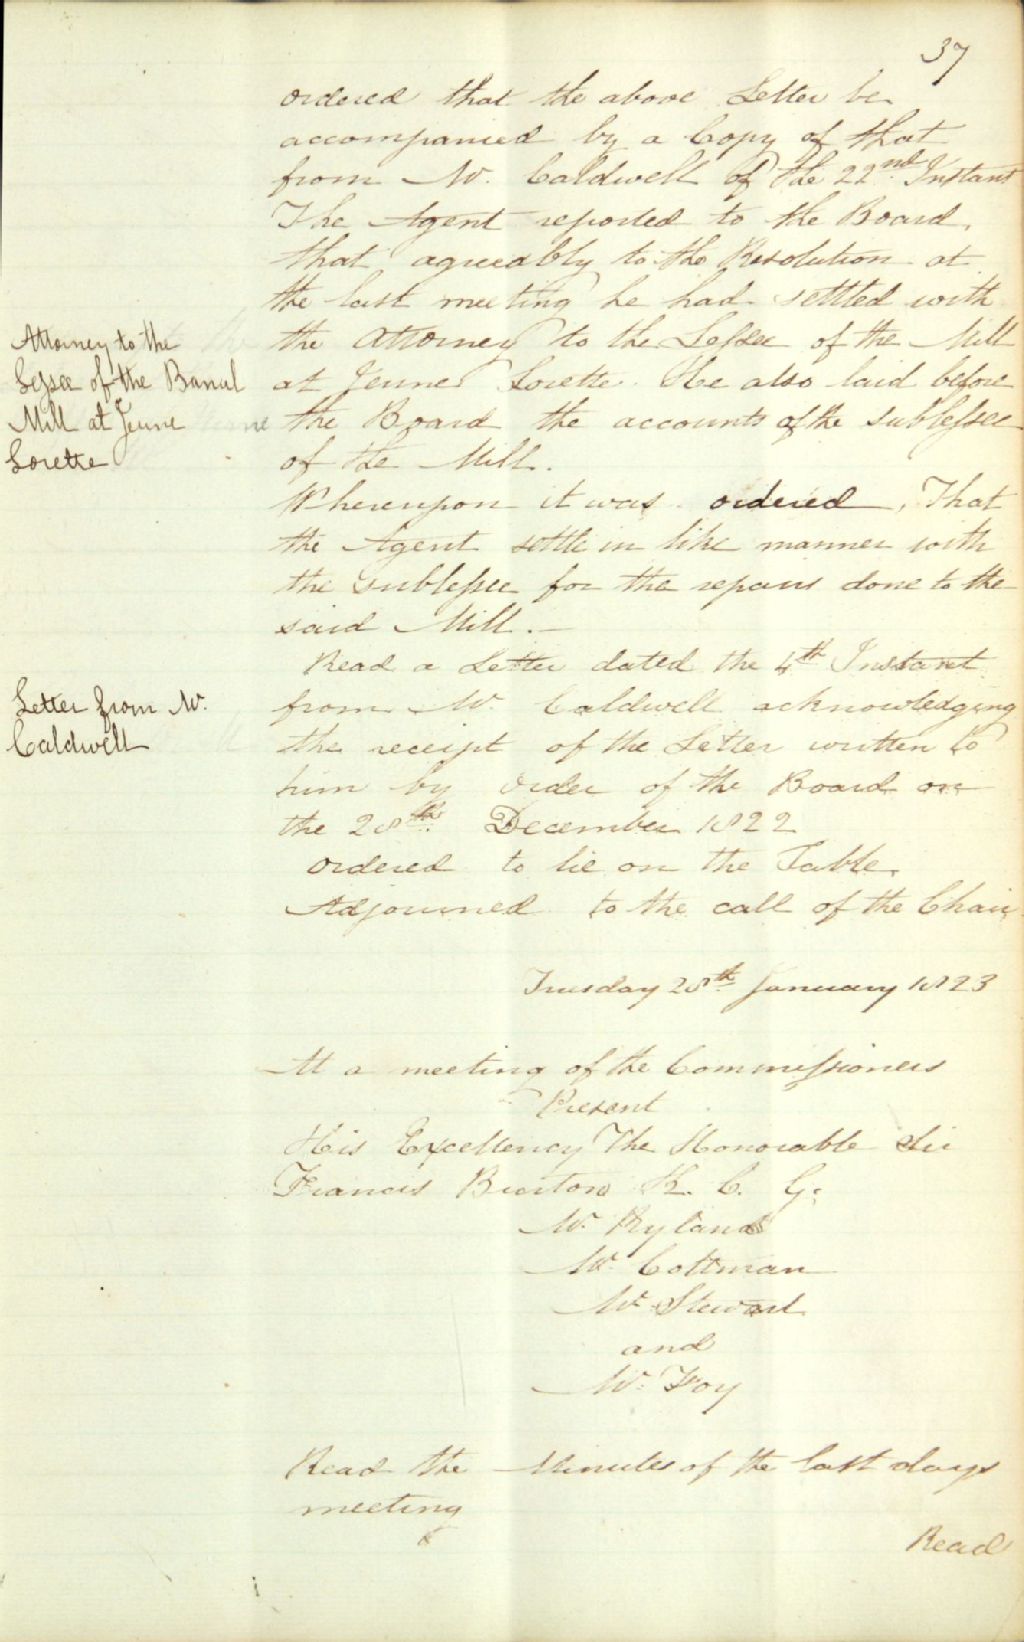 37
ordered that the above Letter be
accompanied by a Copy of that
from Mr. Caldwell of the 22nd. Instant
The Agent reported to the Board,
that agreeably to the Resolution at
the last meeting he had settled with
Attorney to the
Lessee of the Banal
Mill at Jeune
Lorette
the Attorney to the Lessee of the Mill
at Jeune Lorette. He also laid before
the Board the accounts of the sublessee
of the Mill.
Whereupon it was ordered, That
the Agent settle in like manner with
the sublessee for the repairs done to the
said Mill.—
Read a Letter dated the 4th Instant
Letter from Mr.
Caldwell
from Mr. Caldwell acknowledging
the receipt of the Letter written to
him by order of the Board on
the 28th. December 1822
ordered to lie on the Table.
Adjourned to the call of the Chair
Tuesday 28th. January 1823
At a meeting of the Commissioners
Present
His Excellency The Honorable Sir
Francis Burton K. C. G.
Mr. Ryland
Mr. Coltman
Mr. Stewart
and
Mr. Foy
Read the Minutes of the last days
meeting
Read